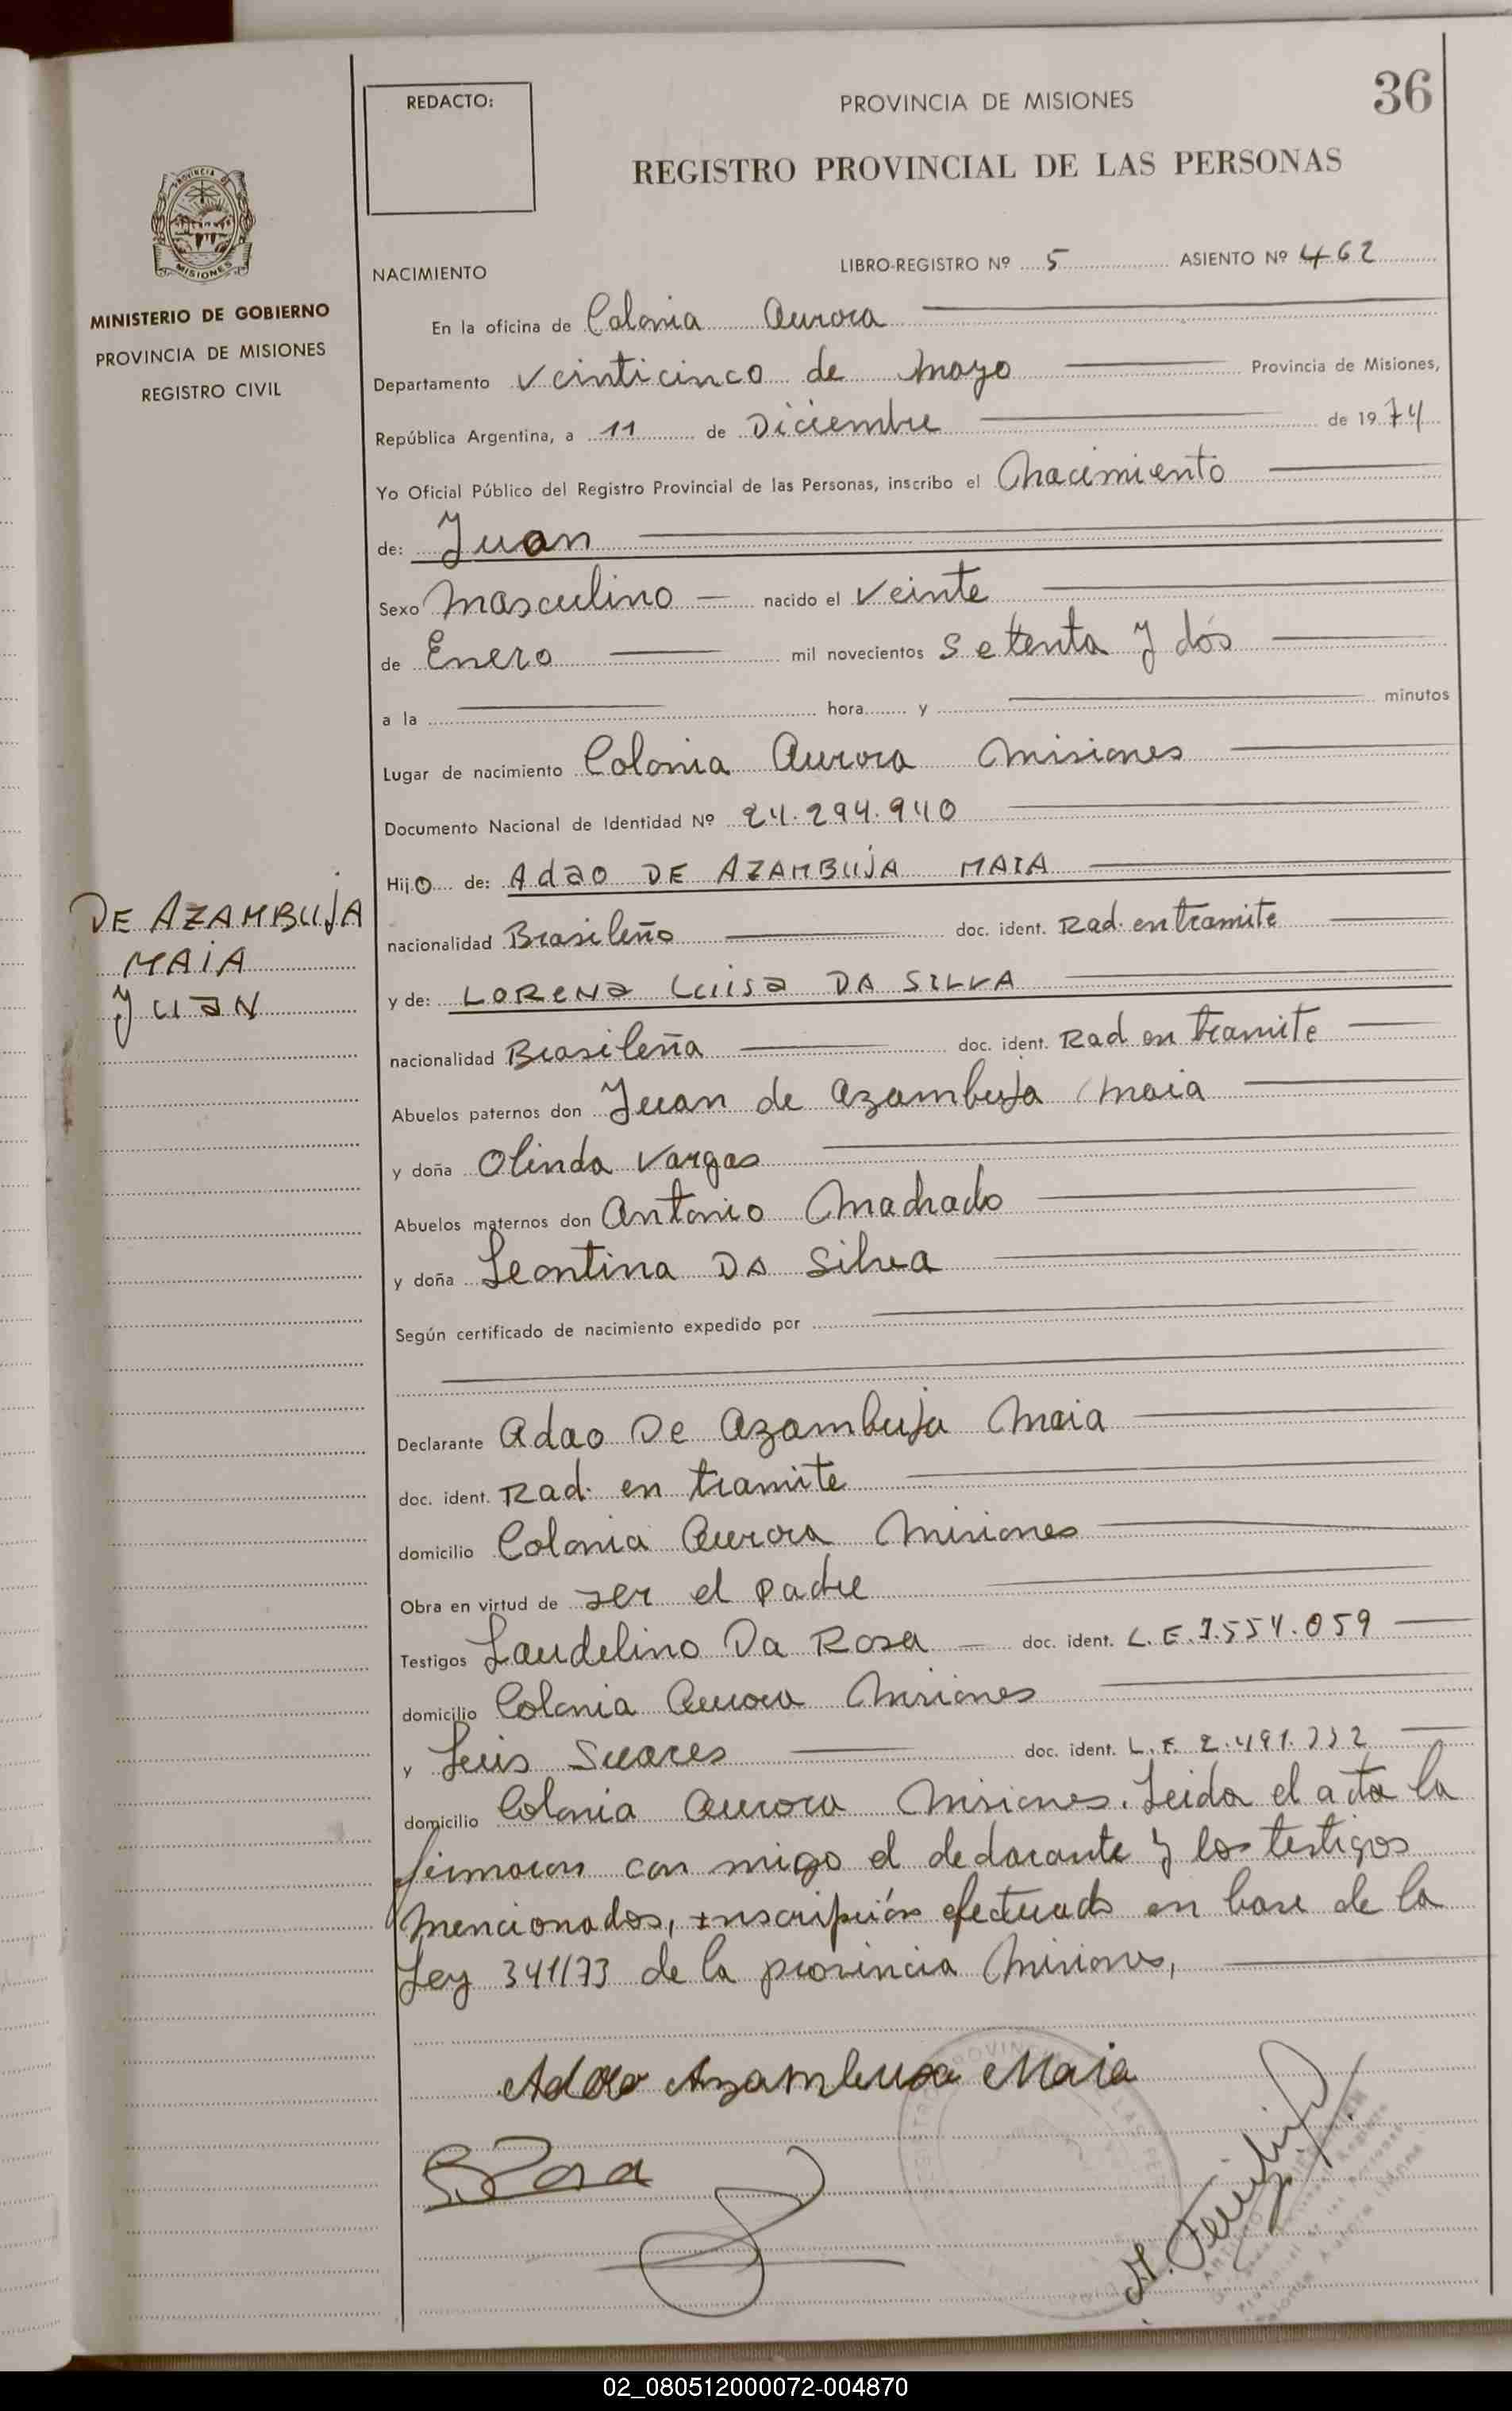 36
REDACTO:
PROVINCIA DE MISIONES
REGISTRO PROVINCIAL DE LAS PERSONAS
PROVINCIA DE
MISIONES
MINISTERIO DE GOBIERNO
PROVINCIA DE MISIONES
REGISTRO CIVIL
NACIMIENTO LIBRO-REGISTRO Nº 5 ASIENTO Nº 462
En la oficina de Colonia Aurora
Departamento Veinticinco de Mayo Provincia de Misiones,
República Argentina, a 11 de Diciembre de 1974
Yo Oficial Público del Registro Provincial de las Personas, inscribo el Nacimiento
de: Juan
Sexo Masculino nacido el Veinte
de Enero mil novecientos Setenta y dós
a la hora y minutos
Lugar de nacimiento Colonia Aurora Misiones
Documento Nacional de Identidad Nº 24.294.940
Hijo de: Adao DE AZAMBUJA MAIA
DE AZAMBUJA
MAIA
JUAN
nacionalidad Brasileño doc. ident. Rad. en tramite
y de: LORENA LUISA DA SILVA
nacionalidad Brasileña doc. ident. Rad en tramite
Abuelos paternos don Juan de Azambuja Maia
y doña Olinda Vargas
Abuelos maternos don Antonio Machado
y doña Leontina Da Silva
Según certificado de nacimiento expedido por
Declarante Adao De Azambuja Maia
doc. ident. Rad. en tramite
domicilio Colonia Aurora Misiones
Obra en virtud de ser el padre
Testigos Laudelino Da Rosa doc. ident. L.E. 7.554.059
domicilio Colonia Aurora Misiones
y Luis Suares doc. ident. L.E. 2.491.
domicilio Colonia Aurora Misiones. Leida el acta la
firmaron con migo el declarante y los testigos
mencionados, inscripción efectuada en base de la
Ley 341/73 de la provincia Misiones,
Adao Azambuxa Maia
Rosa
02_080512000072-004870